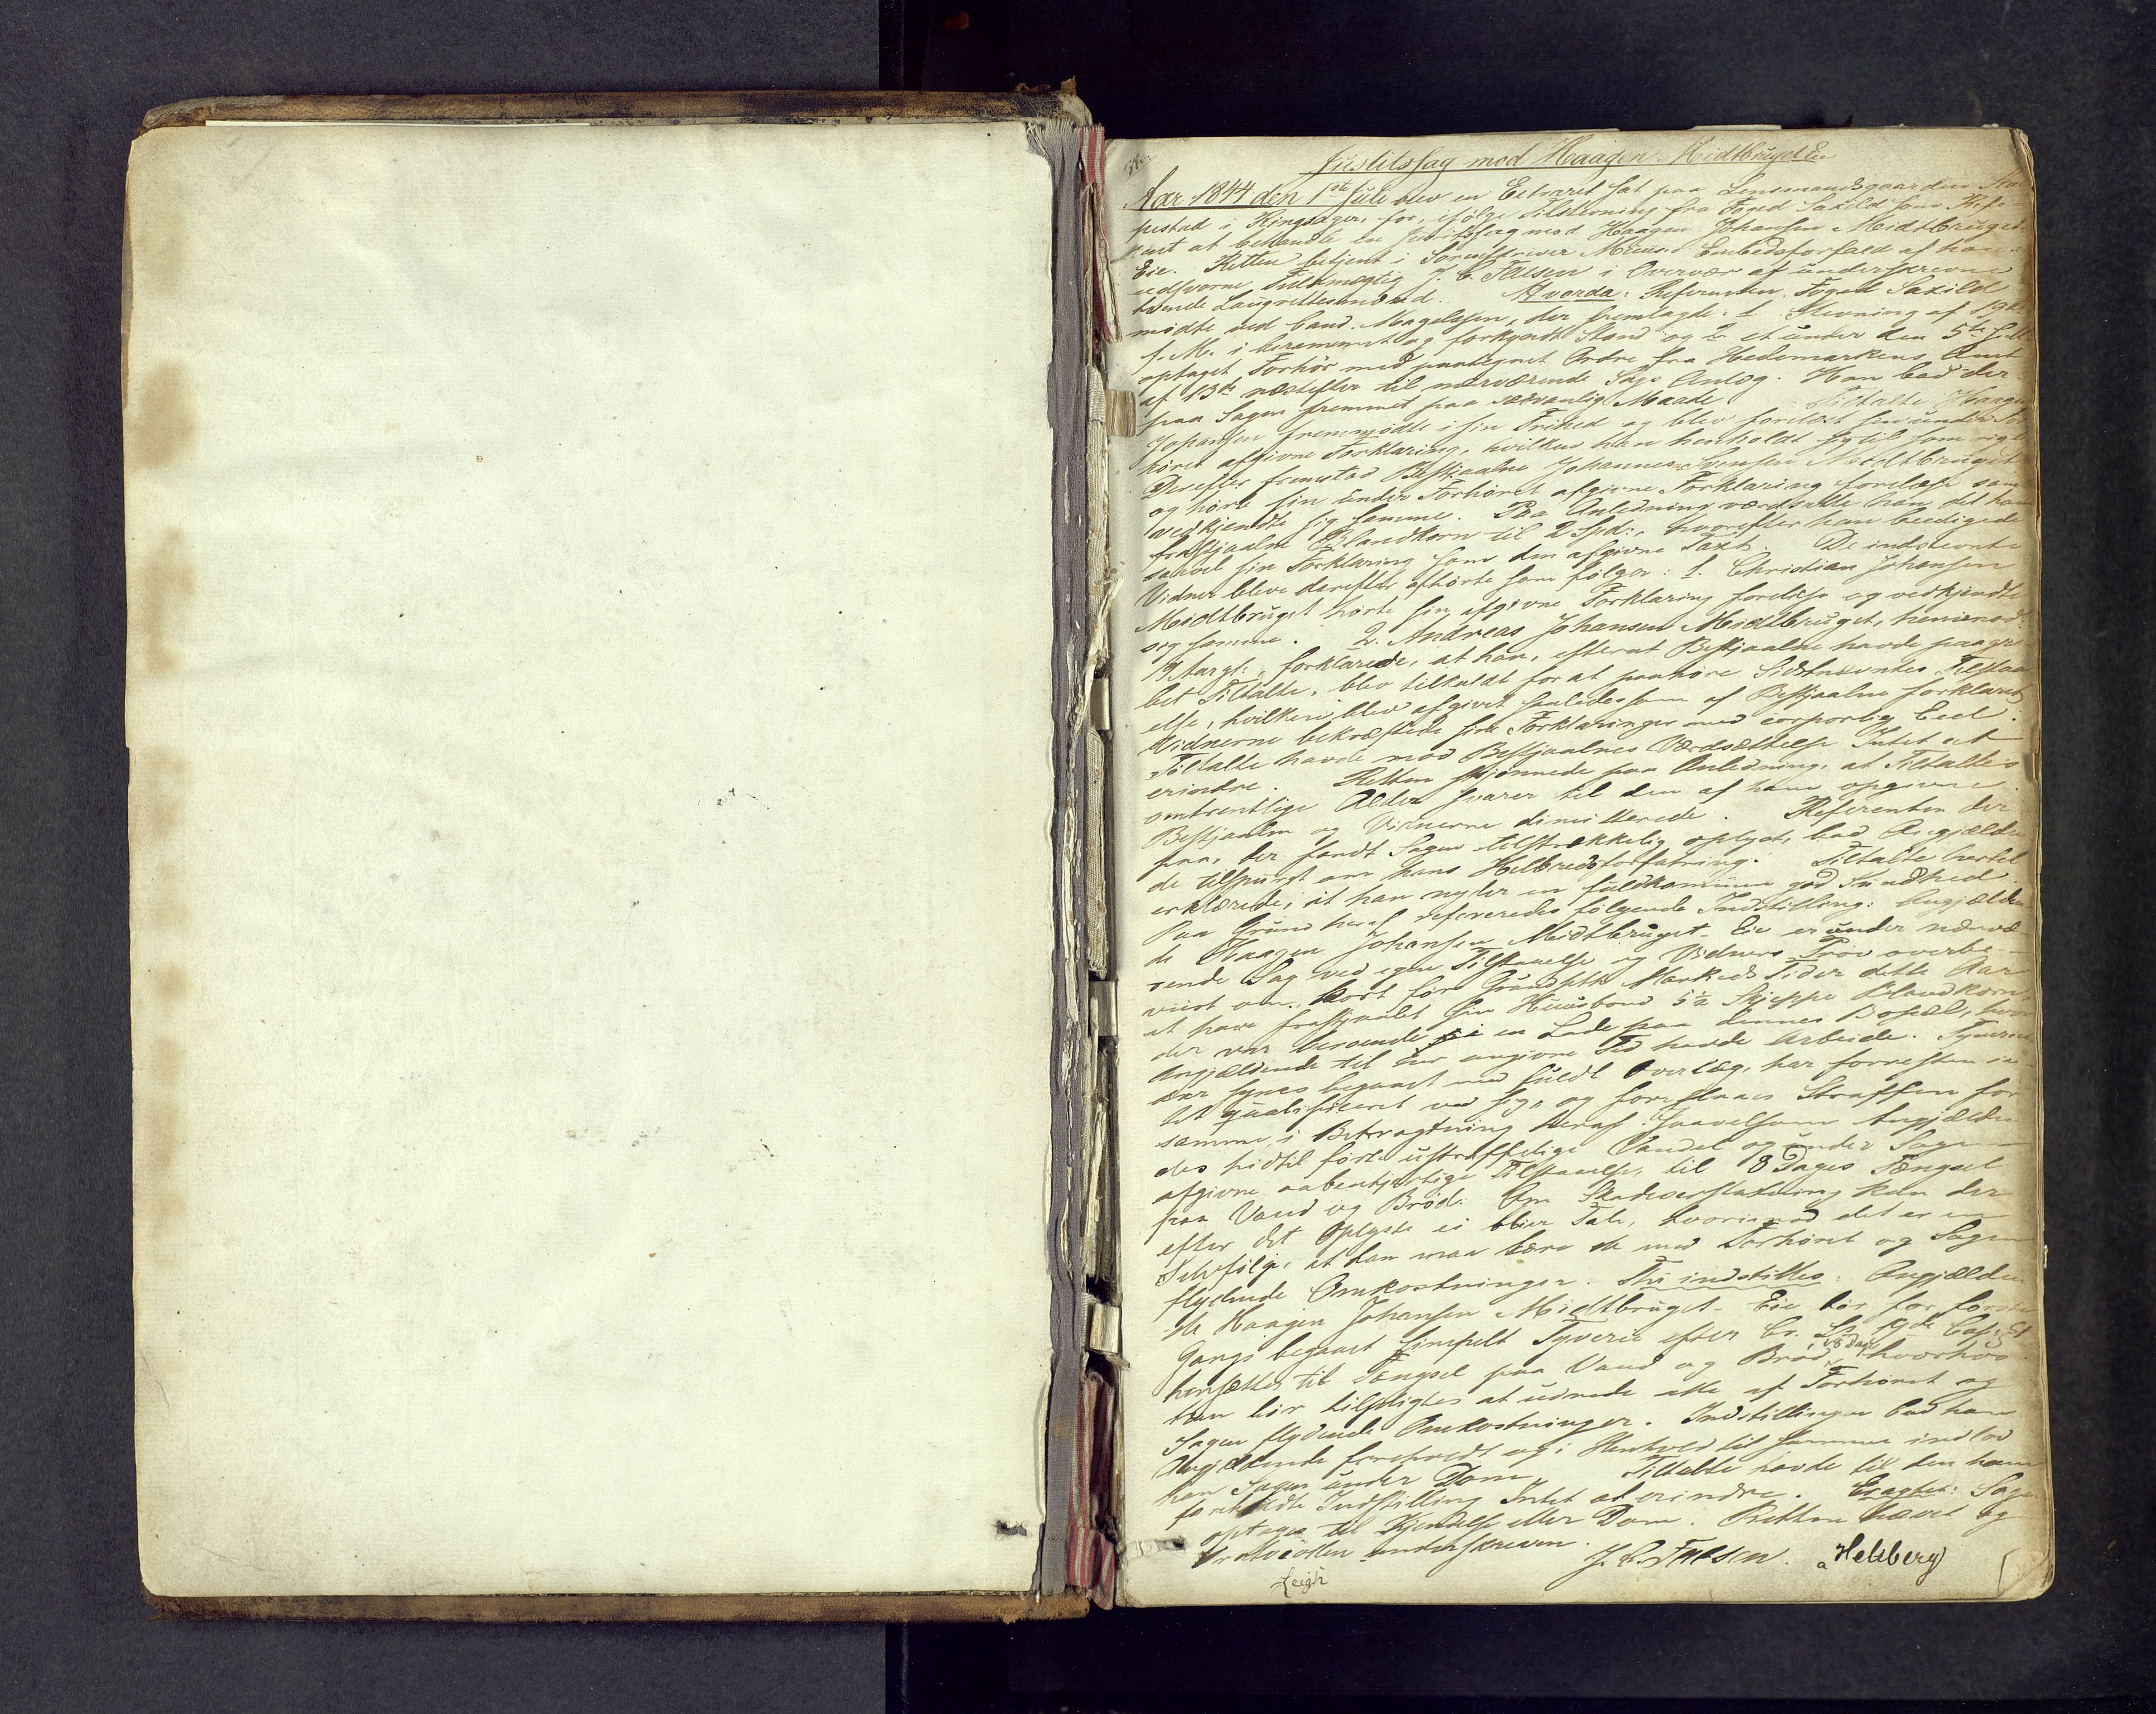 Justitssag mod Haagen Midtbruget Eie
Aar 1844 den 1ste Juli blev en Extraret sat paa Lensmandsgaarden
pestad i Ringsager, for, ifølge Tilstevning fra Foged Saxild som
at behandle en Justitssag mod Haagen Johansen Midtbruget
Eie. Retten betjent i Sorenskriver Embedsforfald af hans
edsvorne Fuldmægtig J. C. Falsen i Overvær af underskrevne
tvende Laugrettesmænd. Hvorda: Referenten, Foged Saxild
mødte ved Cand. Magelssen, der fremlagde: 1 Stevning af 19de
f. M. i berammet og forkyndt Stand og 2 et under den 5te
optaget Forhør med paategnet Ordre fra Hedemarkens Amt
af 13de næstefter til nærværende Sags Anlæg. Han bad der
paa Sagen fremmet paa sædvanlig Maade. Tiltalte Haagen
Johansen fremmødte i sin Frihed og blev forelæst sin under For
høret afgivne Forklaring, hvilken han henholdt sig til som rigtig
Derefter fremstod Bestjaalne Johannes Svensen Midtbruget
og hørte sin under Forhøret afgivne Forklaring forelæse samt
vedkjendte sig samme. Paa Anledning værdsatte han det ham
frastjaalne Blandkorn til 2 Spd:, hvorefter han beedigede
saavel sin Forklaring som den afgivne Taxt. De indstevnte
Vidner bleve derefter afhørte som følger: 1. Christian Johansen
Midtbruget hørte sin afgivne Forklaring forelæse og vedkjendte
sig samme. 2. Andreas Johansen Midtbruget, henimod
Aar gl: forklarede, at han, efterat Bestjaalne havde paagre
bet Tiltalte, blev tilkaldt for at paahøre Sidstnævntes Tilstaa
else, hvilken blev afgivet saaledes som af Bestjaalne forklaret
Vidnerne bekræftede sine Forklaringer med corporlig Eed.
Tiltalte havde mod Bestjaalnes Værdsættelse Intet at
erindre. Retten skjønnede paa Anledning, at Tiltaltes
omtrentlige Alder svarer til den af ham opgivne.
Bestjaalne og Vidnerne dimitterede. Referenten der
paa, der fandt Sagen tilstrækkelig oplyst, bad Angjælden
de tilspurgt om hans Helbredsforfatning. Tiltalte hertil
erklærede, at han nyder en fuldkommen god Sundhed.
Paa Grund heraf refereredes følgende Indstilling: Angjælden
de Haagen Johansen Midtbruget-Eie er under nærvæ
rende Sag ved egen Tilstaaelse og Vidners Prov overbe-
viist om, kort før Grundset Markeds Tider dette Aar
at have frastjaalet sin Huusbond 5½ Skjeppe Blandkorn,
der var beroende i en Lade paa dennes Bopæl, hvor
Angjældende til den angivne Tid havde Arbeide. Tyveriet
der synes begaaet med fuldt Overlæg, har forresten in
tet qualificeret ved sig, og foreslaaes Straffen for
samme, i Betragtning heraf saavelsom Angjælden
des hidtil førte ustraffelige Vandel og under Sagen
afgivne aabenhjertige Tilstaaelse, til 8 Dages Fængsel
paa Vand og Brød. Om Skadeserstatning kan der
efter det Oplyste ei blive Tale, hvorimod det er en
Selvfølge, at han maa bære de med Forhøret og Sagen
flydende Omkostninger. Thi indstilles: Angjælden
de Haagen Johansen Midtbruget-Eie bør for første
Gangs begaaet simpelt Tyverie efter Cr. L. 19de Cap:
hensættes til Fængsel paa Vand og Brød i 8 Dage, hvorhos
han bør tilpligtes at udrede alle af Forhøret og
Sagen flydende Omkostninger. Indstillingen bad han
Angjældende foreholdt og i Henhold til samme indlod
han Sagen under Dom. Tiltalte havde til den ham
foreholdte Indstilling Intet at erindre. Eragtet: Sagen
optages til Kjendelse eller Dom. Retten hævet og
Protocollen underskreven.
J. C. Falsen. Helsberg